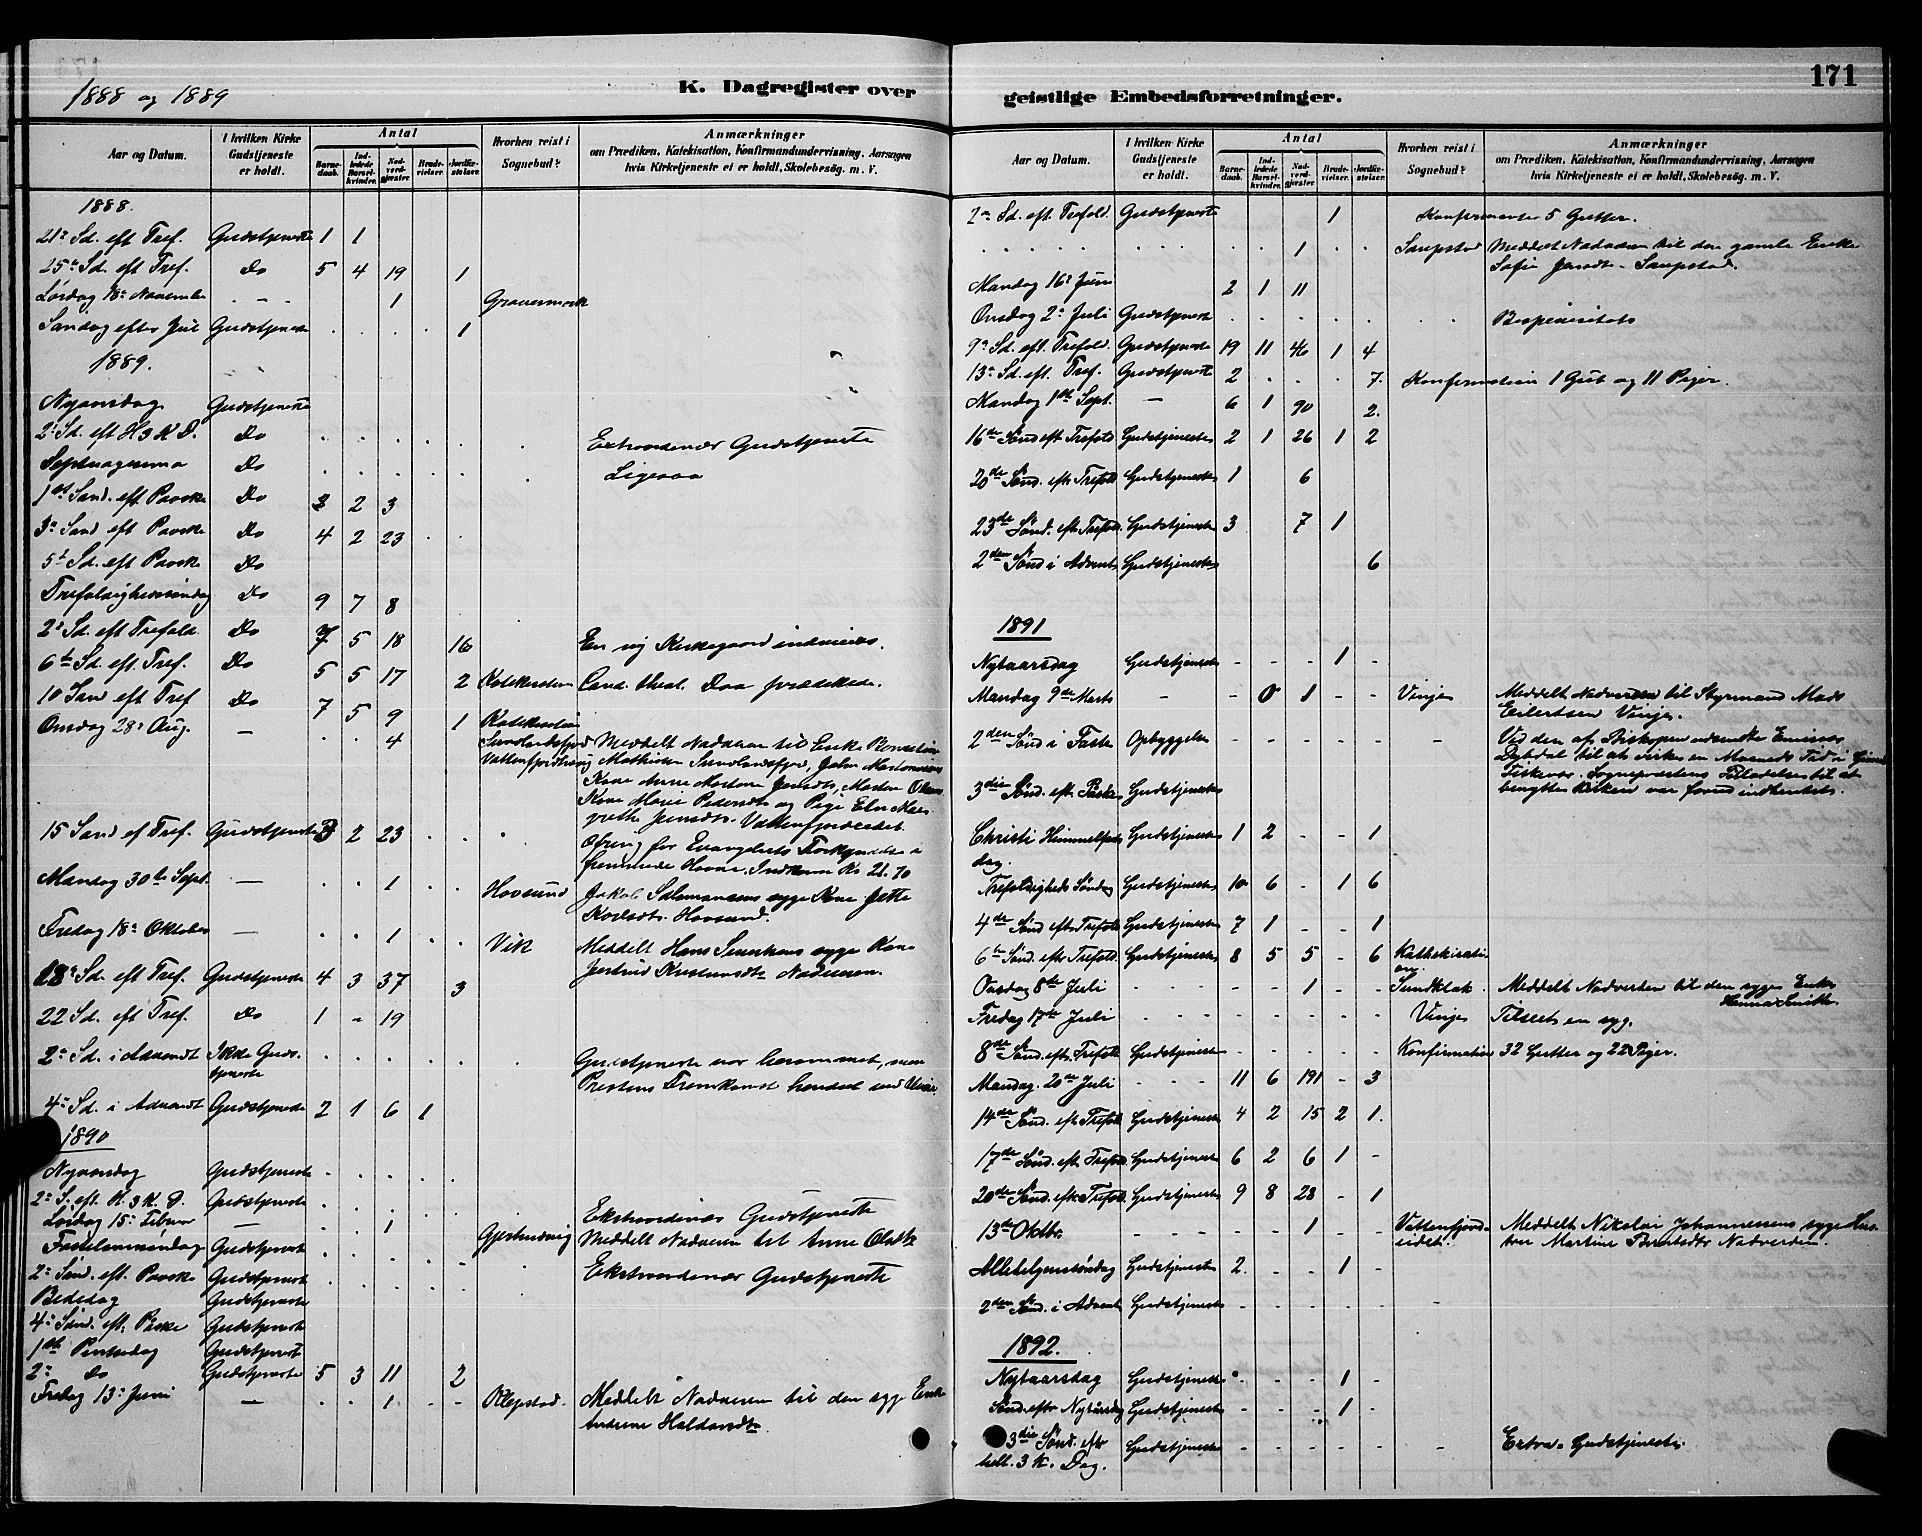 1888 og 1889
K. Dagregister over
Aar og Datum.
I hvilken Kirke Gudstjeneste er holdt.
Antal
Barnedaab.
Indledede Barselkvinder.
Nadverdgjæster.
Brudevielser.
Jordfæstelser.
Hvorhen reist i Sognebud?
Anmærkninger
om Prædiken, Katekisation, Konfirmandundervisning, Aarsagen
hvis Kirketjeneste ei er holdt, Skolebesøg. m. V.
1888.
21de Sd. eft Tref. Gudstjeneste 1 1
25de Sd. eft Tref. Do 5 4 19 1
Lørdag 18de November - - 1
Søndag efter Jul Gudstjeneste . . . . 1
1889.
Nyaarsdag Gudstjeneste
2den Sd. eft H 3 K D. Do . . . . . Extraordinær Gudstjeneste
Septuagesima Do . . . . . Ligesaa
1ste Sønd. eft. Paaske Do 3 2 3
3die Sønd eft Paaske Do 4 2 23 . .
5te Sd. eft Paaske Do
Trefoldighedssøndag Do 9 7 8
2den Sd. eft Trefold. Do 7 5 18 16 En ny Kirkegaard indviedes.
6te Sd. eft. Tref. Do 5 5 17 2 Katekisation Cand. theol. Daa prædikede.
10 Sønd eft Tref Do 7 5 9 1 Katekisation
Onsdag 28de Aug. - . . 4
Sundlandsfjord Meddelt Nadveren til Enke
Mathisen Sundlandsfjord,
Kone Anne
Kone Maren Pedersdtr og Pige
Vattenfjordeidet.
15 Sønd ef Tref. Gudstjeneste 3 2 23 . . . Ofring for Evangeliets Forkyndelse i
fremmede Havne. Indkom Kr 21.70
Mandag 30te Sept. - . . 1 . . Hovsund Jakob Salamonsens syge Kone Jette
Hovsund.
Fredag 18de Oktober - . . 1 . . Vik Meddelt Hans syge Kone
Nadveren.
18de Sd. eft Tref. Gudstjeneste 4 3 37 3
22 Sd. eft Tref. Do 1 - 19
2den Sd. i Advendt Ikke Gudstjeneste . . . . . . Gudstjeneste var berammet, men
Prestens Fremkomst hindret ved Uveir.
4de Sd. i Advendt Gudstjeneste 2 1 6 1
1890
Nyaarsdag Gudstjeneste . . . .
2den S. eft. H. 3 K. D. Gudstjeneste . . . . . Ekstraordinær Gudstjeneste
Lørdag 15de Februar - . . 1 Meddelt Nadveren til Anne Olsdtr
Fastelavnssøndag Gudstjeneste . . . . .
2den Sønd. eft. Paaske Gudstjeneste . . . . . Ekstraordinær Gudstjeneste
Bededag Gudstjeneste
4de Sønd. eft. Paaske Gudstjeneste
1ste Pintsedag Gudstjeneste
2den Do Gudstjeneste 5 3 11 2
Fredag 13de Juni - . . 1 - - Ollepstad. Meddelt Nadveren til den syge Enke
Haldorsdtr
171
geistlige Embedsforretninger.
Aar og Datum.
I hvilken Kirke Gudstjeneste er holdt.
Antal
Barnedaab.
Indledede Barselkvinder.
Nadverdgjæster.
Brudevielser.
Jordfæstelser.
Hvorhen reist i Sognebud?
Anmærkninger
om Prædiken, Katekisation, Konfirmandundervisning, Aarsagen
hvis Kirketjeneste ei er holdt, Skolebesøg. m. V.
2den Sd. eft Trefold. Gudstjeneste 1 Konfirmerter 5 Gutter.
. . . . . . . . . 1 . . Saupstad Meddelt Nadveren til den gamle Enke
Sofie Jensdtr - Saupstad.
Mandag 16de Juni 2 1 11
Onsdag 2den Juli Gudstjeneste . . . . . . Bispevisitats
9de Sd. eft. Trefold. Gudstjeneste 19 11 46 1 4
13de Sd. eft. Tref. Gudstjeneste 2 . . . 7. Konfirmation 1 Gut og 11 Piger.
Mandag 1ste Sept. - 6 1 90 2.
16de Sønd eft Trefold Gudstjeneste 2 1 26 1 2
20de Sønd. eft Trefold Gudstjeneste 1 6
23de Sønd. eft. Trefold. Gudstjeneste 3 7 1
2den Sønd i Advent Gudstjeneste 6
1891
Nytaarsdag Gudstjeneste - - - 1 -
Mandag 9de Marts - - 0 1 - - Vinje Meddelt Nadverden til Styrmand Mads
Eilertsen Vinje.
2den Sønd i Faste Opbyggelse - - - - - - Ved den af Biskopen udsendte Emissær
Dybdal til at virke en Maaneds Tid i
Fiskevær. Sognepræstens Tilladelse til at
benytte Kirken var forud indhentet.
3die Sønd. eft. Paaske Gudstjeneste
Christi Himmelfartsdag. Gudstjeneste 1 2 - - 1
Trefoldigheds Søndag Gudstjeneste 10 6 - 1 6
4de Sønd efter Trefold Gudstjeneste 7 1 - - 1
6te Sønd. eft. Trefold. Gudstjeneste 8 5 5 - 6 Kathekisation
Onsdag 8de Juli - - - - - 1 - - Sundklak. Meddelt Nadverden til den syge Enke
Hanna Smith.
Fredag 17de Juli - - - - - - - - Vinje Tilseet en syg.
8de Sønd. eft. Trefold Gudstjeneste - - - - - Konfirmation 32 Gutter og 22 Piger.
Mandag 20de Juli - - - 11 6 191 - 3
14de Sønd. eft. Trefold Gudstjeneste 4 2 15 2 1.
17de Sønd. eft Trefold Gudstjeneste 6 2 6 1 -
20de Sønd. eft. Trefold. Gudstjeneste 9 8 28 - 1
13de Oktbr. - - - - - 1 - - Vattenfjordeidet. Meddelt Nikolai Johannessens syge Hustru
Martine Nadverden.
Allehelgensøndag Gudstjeneste 2. - - 1 -
2den Sønd. i Advent Gudstjeneste - - - - - -
1892.
Nytaarsdag Gudstjeneste - - - 1 -
Sønd. eftr Nytaarsdag Gudstjeneste - - - 1 -
3die Sønd. eftr hell. 3 K. Dag. Gudstjeneste - - - - - - Extra-Gudstjeneste.